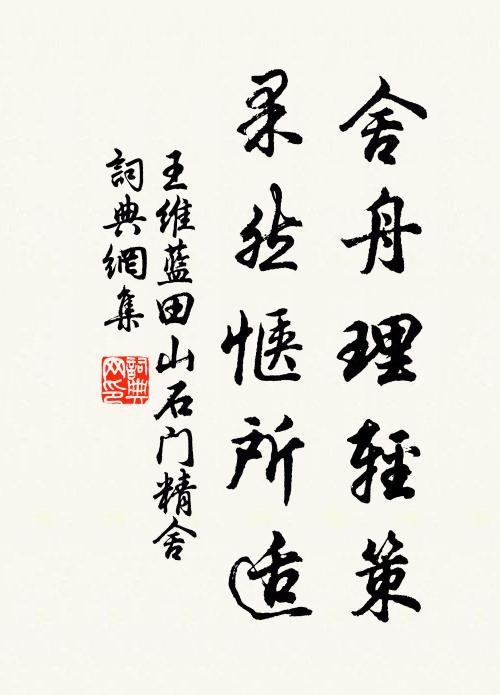 舍舟理輕策
果然愜所适
王維蓝田山石门精舍
詞典網集
詞典網印